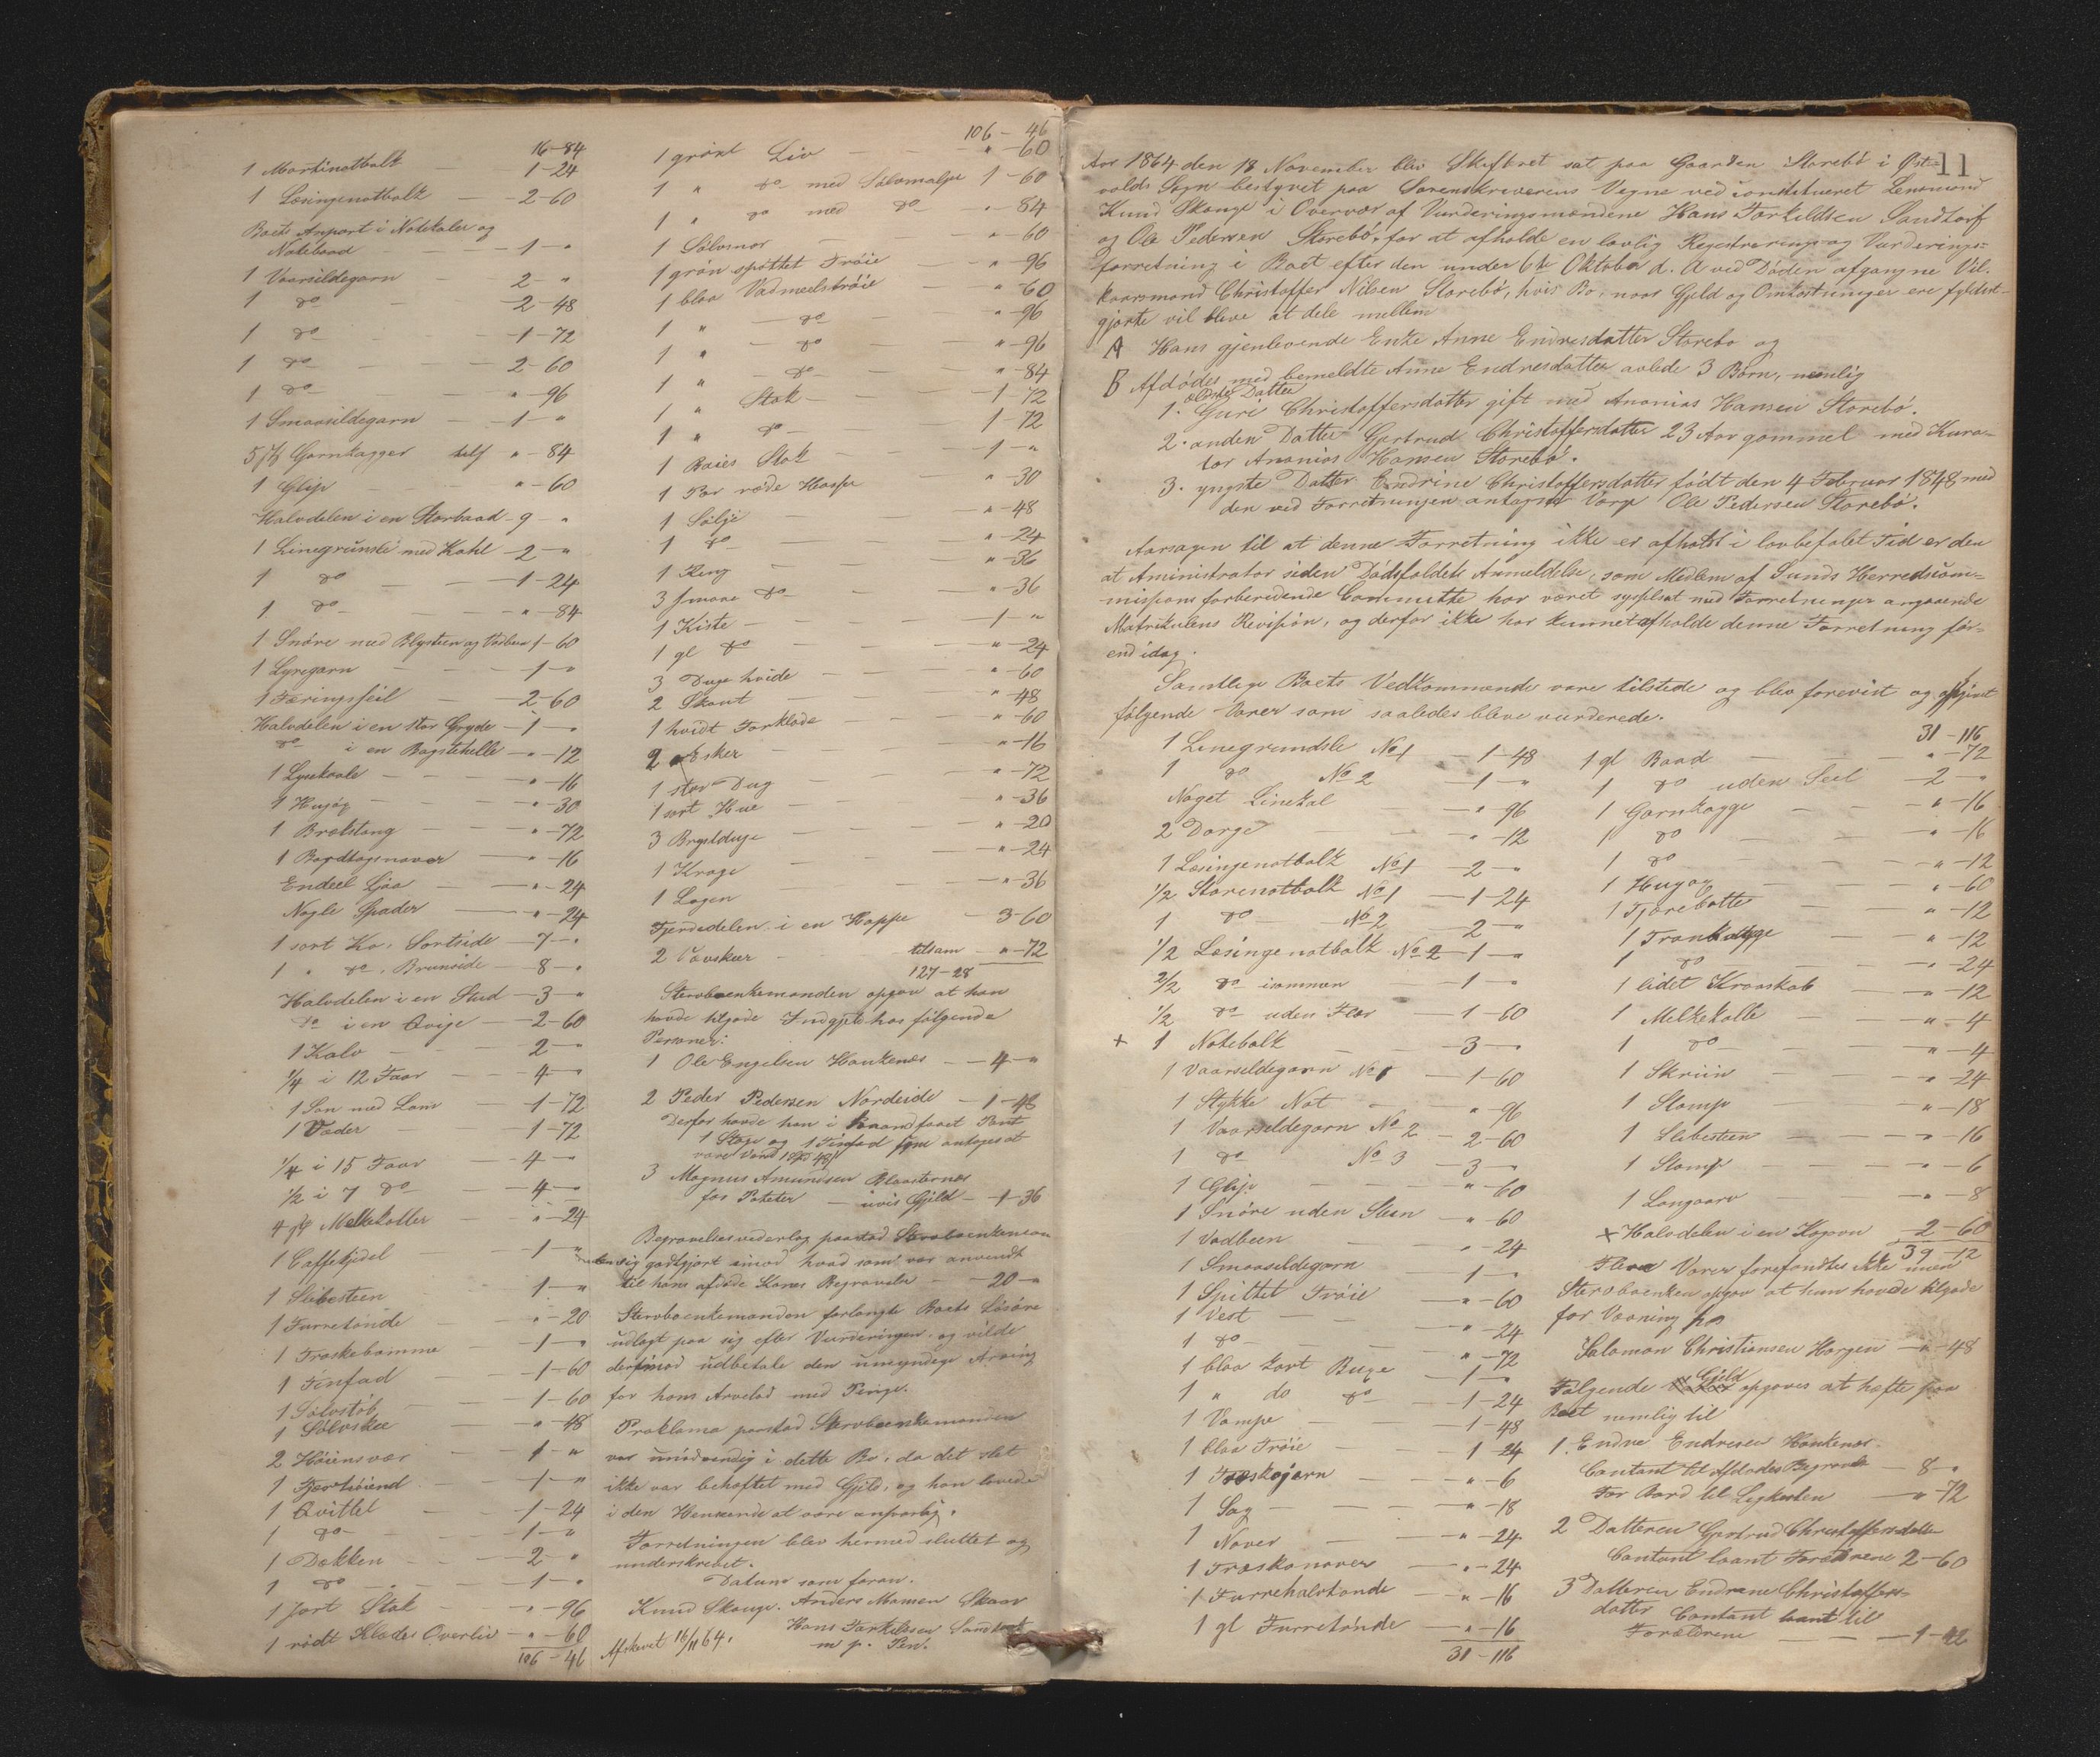 16-84
1 Mortinotbolk - 1-24
1 Læsingenotbolk - 2-60
Boets Anpart i Notekaler og
Notebaad - 1-"
1 Vaarsildegarn - 2-"
1 do - 2-48
1 do - 1-72
1 do - 2-60
1 do - "-96
1 Smaasildegarn - 1-"
5 st Garnkagger tils "-84
1 Glip - "-60
Halvdelen i en Storbaad - 9-"
1 Linegrunsle med Kahl - 2-"
1 do - 1-24
1 do - "-84
1 Snøre med Blysteen og Vadbeen 1-60
1 Lyregarn - 1-"
1 Færingsseil - 2-60
Halvdelen i en stor Gryde - 1-"
do i en Bagstehelle - "-12
1 Lysekaale - "-16
1 Hugjøg - "-30
1 Brækstang - "-72
1 Bordtagsnaver - "-16
Endeel Ljaa - "-24
Nogle Spader - "-24
1 sort Ko, Sortside - 7-"
1 " do, Brunside - 8-"
Halvdelen i en Stud - 3-"
do i en Qvige - 2-60
1 Kalv - 2-"
1/4 i 12 Faar - 4-"
1 Son med Lam - 1-72
1 Væder - 1-72
1/4 i 15 Faar - 4-"
1/2 i 7 do - 4-"
4 st Melkekoller - "-24
1 Caffekjedel - 1-"
1 Slibesteen - 1-"
1 Furretønde - "-20
1 Træskebomme - 1-"
1 Tinfad - 1-60
1 Sølvstøb - 1-60
1 Sølvskee - "-48
2 Høiensvær - 1-"
1 Fjærhøiend - 1-"
1 Qvittel - 1-24
1 do - 1-"
1 Dækken - 2-"
1 do - 1-"
1 sort Stak - "-96
1 rødt Klædes Overliv - "-60
106-46
106-46
1 grønt Liv - "-60
1 " do med Sølvmalje 1-60
1 " do med do - "-84
1 Sølvsnor - "-60
1 grøn spøttet Trøie - "-96
1 blaa Vadmelstrøie - "-60
1 " do - "-96
1 " do - "-96
1 " do - "-84
1 " Stak - 1-72
1 " do - 1-72
1 Baies Stak - 1-"
1 Par røde Hoser - "-30
1 Sølje - "-48
1 do - "-24
1 Ring - "-36
3 smaae do - "-36
1 Kiste - 1-"
1 gl do - "-24
3 Duge hvide - "-60
2 Skaut - "-48
1 hvidt Forklæde - "-60
2 Æsker - "-16
1 stor Dug - "-72
1 sort Hue - "-36
3 Brystduge - "-20
1 Krage - "-24
1 Lagen - "-36
Fjerdedelen i en Hoppe - 3-60
2 tilsam - "-72
127-28
Stervboenkemanden opgav at han
havde tilgode Indgjeld hos følgende
Personer:
1 Ole Engelsen Haukenes - 4-"
2 Peder Pedersen Nordeide - 1-48
Derfor havde han i Haand faaet Pant
1 og 1 Tinfad som antages at
være værd 1 Spd 48 s
3 Magnus Amundsen
for Poteter - uvis Gjeld - 1-36
Begravelsesvederlag paastod Stervboenkemanden
sig godtgjort imod hvad som var anvendt
til hans afdøde Kones Begravelse - 20-"
Stervboenkemanden forlangte Boets Løsøre
udlagt paa sig efter Vurderingen, og vilde
derimod udbetale den umyndige Arving
for hans Arvelod med Penge.
Proklama paastod Stervboenkemanden
var unødvendig i dette Bo, da det slet
ikke var behæftet med Gjeld, og han lovede
i den Henseende at være ansvarlig.
Forretningen blev hermed sluttet og
underskrevet.
Datum som foran.
Knud Skauge. Anders Monsen Skaar
Hans Torkildsen Sandtorf
m p. Pen.
Afskrevet 16/11 64.
11
Aar 1864 den 18 November blev Skifteret sat paa Gaarden Storebø i Øst-
volds Sogn bestyret paa Sorenskriverens Vegne ved constitueret Lensmand
Knud Skauge i Overvær af Vurderingsmændene Hans Torkildsen Sandtorf
og Ole Pedersen Storebø, for at afholde en lovlig Registrerings og Vurderings-
forretning i Boet efter den under 6te Oktober d. A ved Døden afgangne Vil-
kaarsmand Christoffer Nilsen Storebø, hvis Bo, naar Gjeld og Omkostninger ere fyldest-
gjorte vil bleve at dele mellem
A Hans gjenlevende Enke Anne Endresdatter Storebø og
B Afdødes med bemeldte Anne Endresdatter avlede 3 Børn, nemlig
ældste Datter
1. Guri Christoffersdatter gift med Ananias Hansen Storebø.
2. anden Datter Gjertrud Christoffersdatter 23 Aar gammel med Kura-
tor Ananias Hansen Storebø.
3. yngste Datter Endrine Christoffersdatter født den 4 Februar 1848 med
den ved Forretningen antagne Værge Ole Pedersen Storebø.
Aarsagen til at denne Forretning ikke er afholdt i lovbefalet Tid er den
at Aministrator siden Dødsfaldets Anmeldelse, som Medlem af Sunds Herredscom-
missions forberedende Committe har været sysselsat med Forretninger angaaende
Matrikulens Revision, og derfor ikke har kunnet afholde denne Forretning før-
end idag.
Samtlige Boets Vedkommende vare tilstede og blev forevist og opgivet
følgende Varer som saaledes bleve vurderede.
1 Linegrundsle No 1 - 1-48
1 do No 2 - 1-"
Noget Linekal - "-96
2 Dorge - "-12
1 Læsingenotbolk No 1 - 2-"
1/2 Storenotbolk No 1 - 1-24
1 do No 2 - 2-"
1/2 Læsingenotbolk No 2 - 1-"
2/2 do isammen - 1-"
1/2 do uden Flaa - 1-60
+ 1 Notebolk - 3-"
1 Vaarsildegarn No 1 - 1-60
1 Stykke Not - "-96
1 Vaarsildegarn No 2 - 2-60
1 do No 3 - 3-"
1 Glip - "-60
1 Snøre uden Steen - "-60
1 Vadbeen - "-24
1 Smaasildegarn - 1-"
1 Spittet Trøie - "-60
1 Vest - "-24
1 do - "-72
1 blaa kort Buxe - 1-"
1 " do do - 1-24
1 Vampe - 1-48
1 blaa Trøie - 1-24
1 Træskojern - "-6
1 Sag - "-18
1 Naver - "-24
1 Træskonaver - "-24
1 Furrehalvtønde - "-16
1 gl Furretønde - "-16
31-116
31-116
1 gl Baad - "-72
1 do uden Seil - 2-"
1 Garnkagge - "-16
1 do - "-16
1 do - "-12
1 Hugøg - "-60
1 Tjærebøtte - "-12
1 Trankagge - "-12
1 do - "-24
1 lidet Kraaskab - "-12
1 Melkekolle - "-4
1 do - "-4
1 Skriin - "-24
1 Stamp - "-18
1 Slibesteen - "-16
1 Stamp - "-6
1 Langaarv - "-8
+ Halvdelen i en - 2-60
39-12
Flere Varer forefandtes ikke men
Stervboenken opgav at hun havde tilgode
for Vævning hos
Salomon Christiansen Horgen - "-48
Følgende Gjeld opgaves at hæfte paa
Boet nemlig til
1. Endre Endresen Haukenæs
Contant til Afdødes Begravelse - 8-"
For Bord til Ligkisten - "-72
2 Datteren Gjertrud Christoffersdatter
Contant laant Forældrene 2-60
3 Datteren Endrine Christoffers-
datter Contant laant til
Forældrene - 1-12